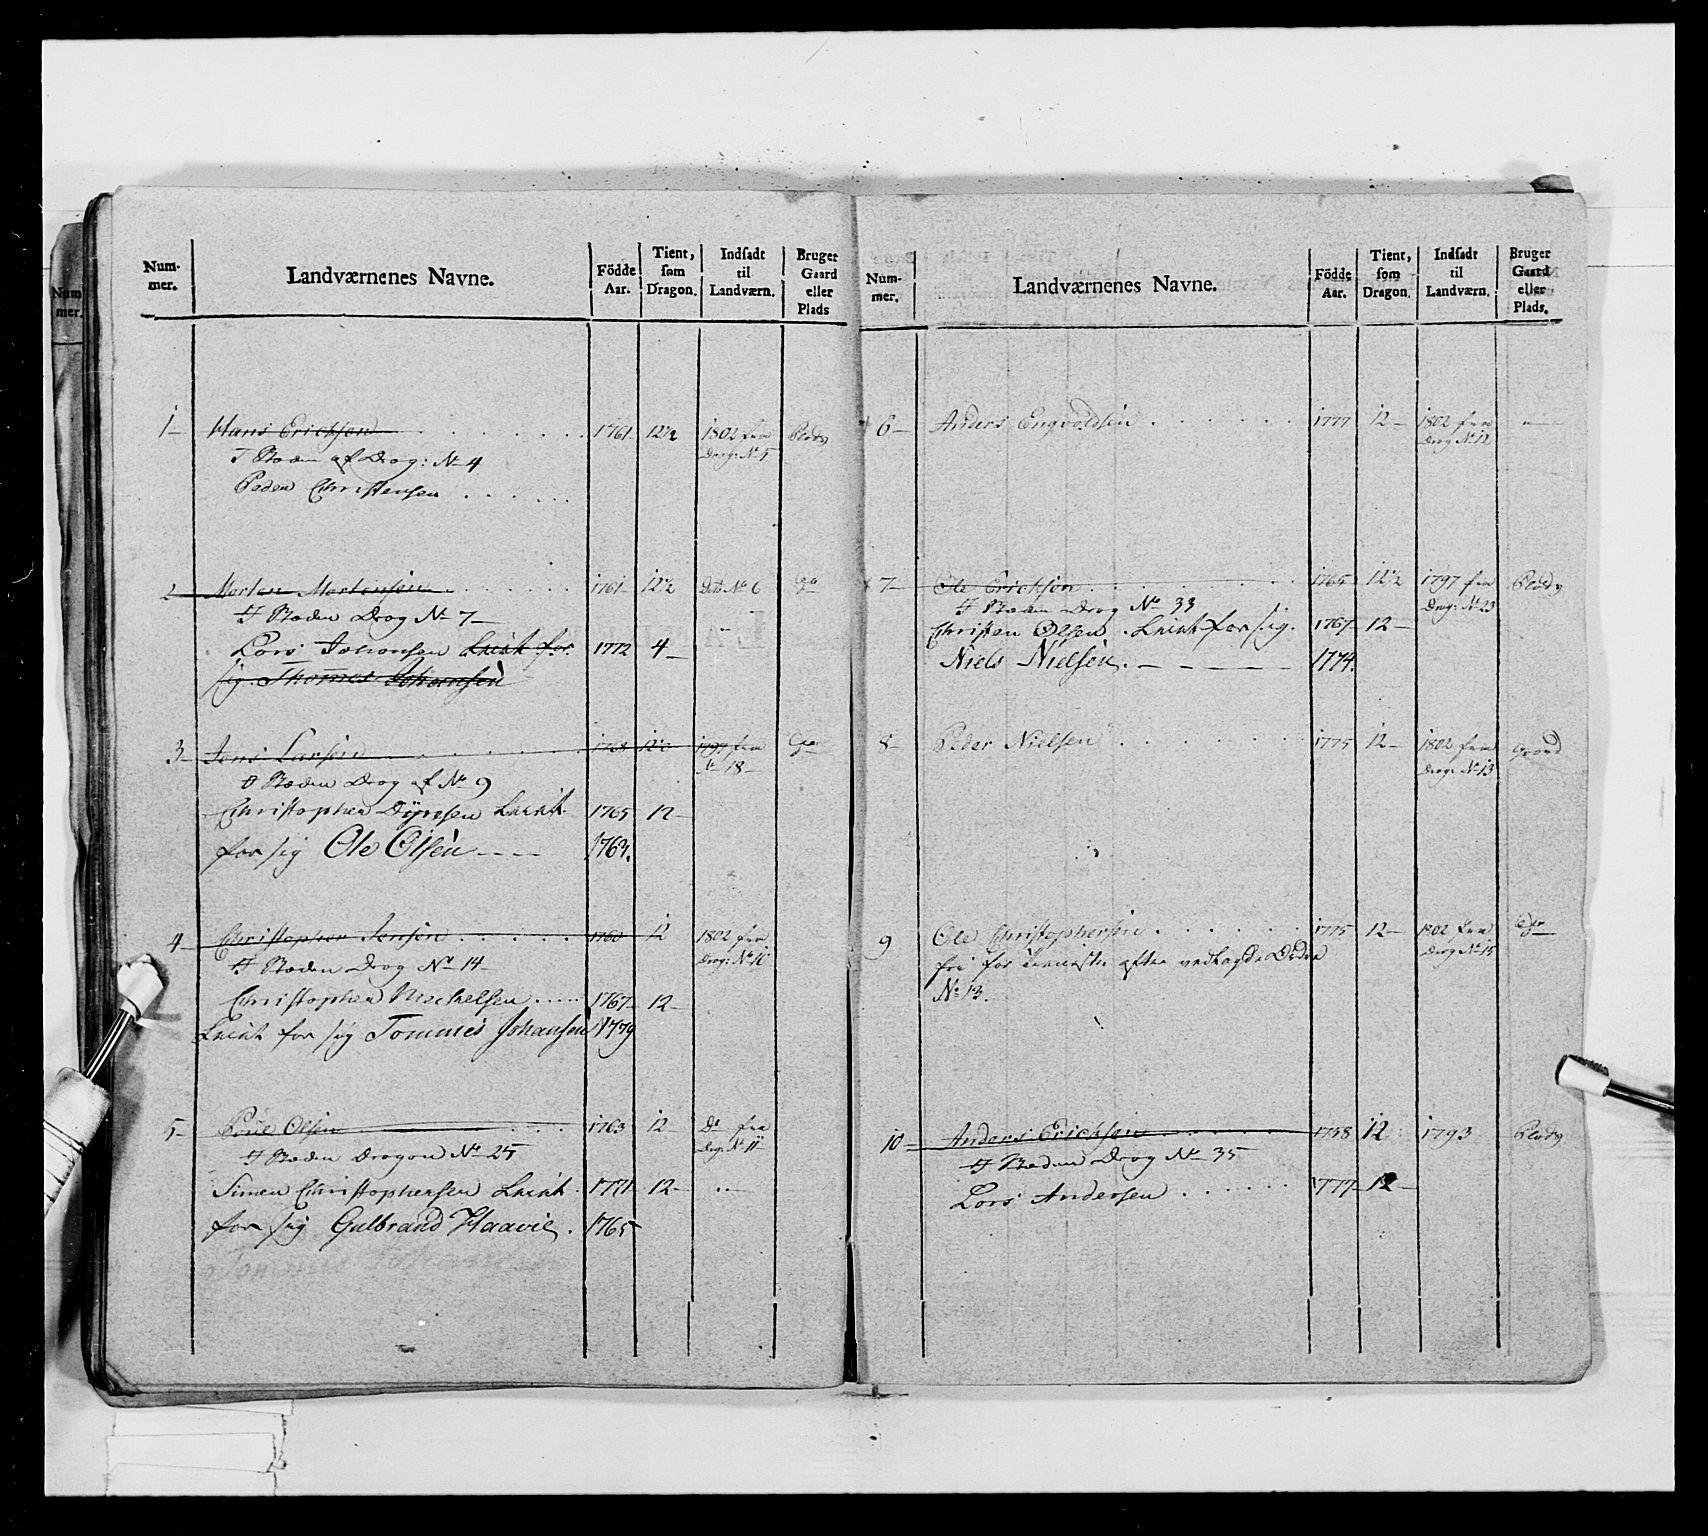 Num-
mer.
Landværnenes Navne.
Födde
Aar.
Tient,
som
Dragon.
Indsadt
til
Landværn.
Bruger
Gaard
eller
Plads
1 Hans Erichsen 1761 12½ 1802 fra Plads
I Stæden af Drag: No 4 Drag: No 5
Peder Christensen
2 Morten Mortensen 1761 12½ No 6
I Stæden Drag No 7
Lars Johansen 1772 4
sig. Thomes Johansen
3 Jens Larsen 1763 12½ 1797 fra
I Stæden Drag af No 9 No 18
Christopher 1765 12
for sig Ole Olsen 1763.
4 Christopher Jensen 1760 12 1802 fra
I Stæden Drag No 14 Drag: No 10
Christopher Michelsen 1767 12
for sig Tommes Johansen 1779
5 Poul Olsen 1763 12 Do fra
I Stæden Dragon No 25 Drag: No 11
Simen Christophersen 1771 12
for sig Gulbrand Haavie. 1765
Num-
mer.
Landværnenes Navne.
Födde
Aar.
Tient,
som
Dragon.
Indsadt
til
Landværn.
Bruger
Gaard
eller
Plads.
6 Anders Engvoldsen 1777 12 1802 fra
Drag No 12
7 Ole Erichsen 1765 12½ 1797 fra Plads
I Stæden Drag No 33 Drag: No 23
Christen Olsen for sig. 1767 12
Niels Nielsen. 1774.
8 Peder Nielsen 1775 12 1802 fra Gaard
Drag: No 13
9 Ole Christophersen 1775 12 1802 fra Do
fri for efter vedlagde Ordre Drag No 15
No 13.
10 Anders Erichsen 1758 12 1793 Plads
I Stæden Drag No 35
Lars Andersen 1777 12